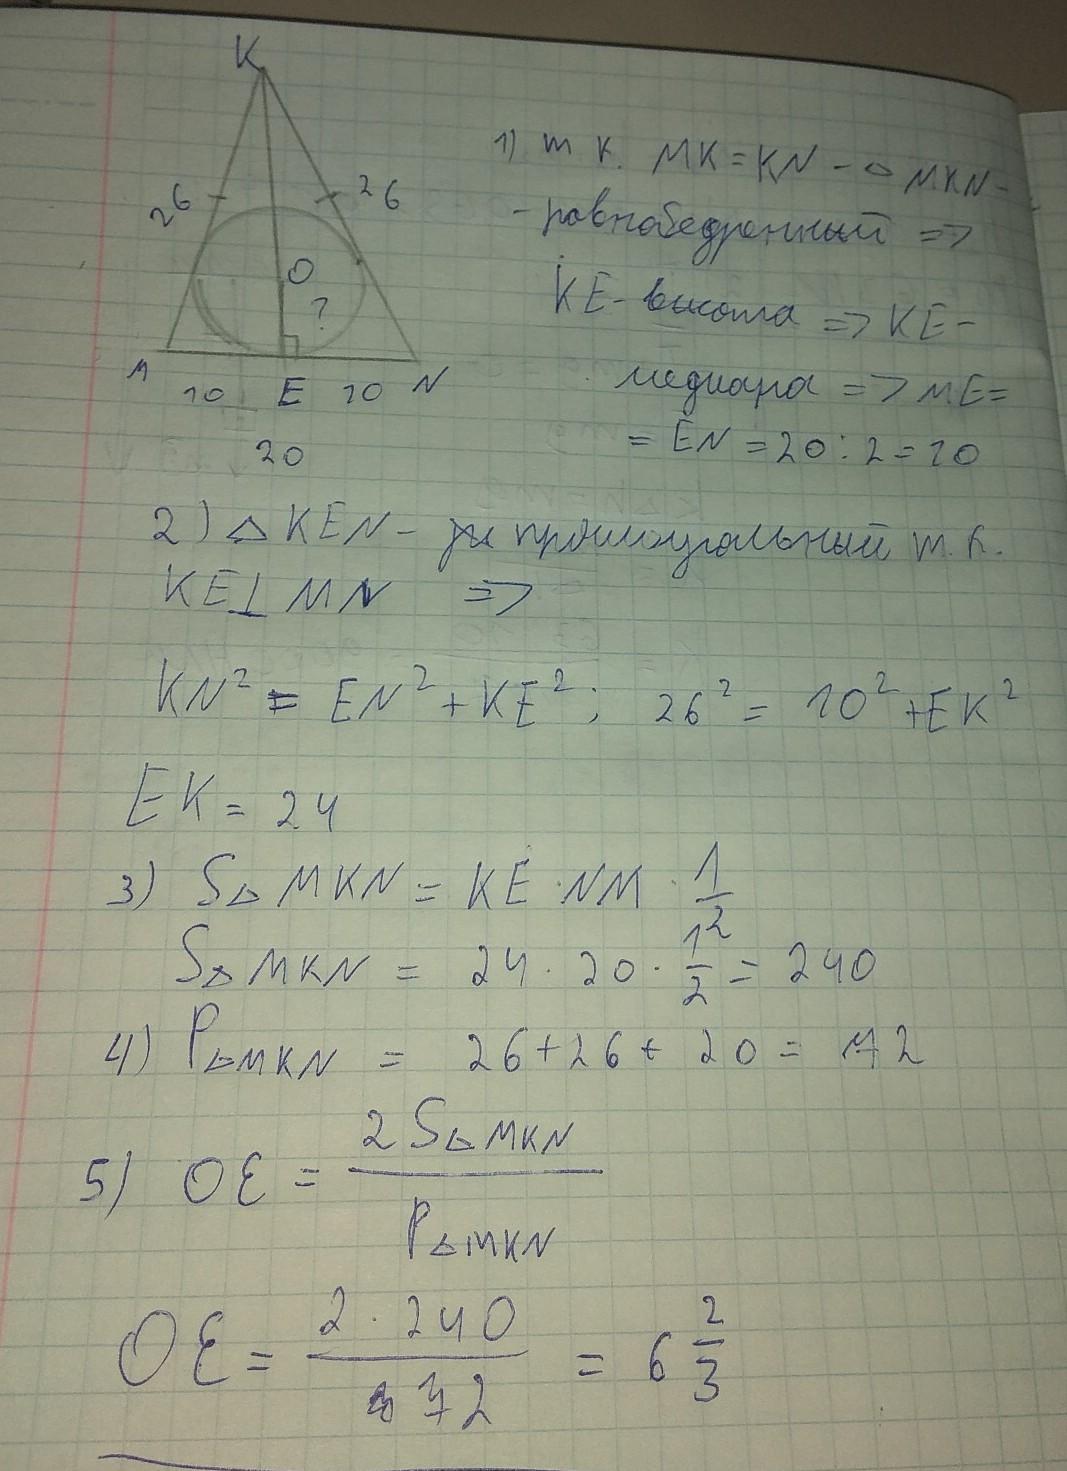 K
26
26
O
?
M
10
E
10
N
20
1) т к. MK=KN - △ MKN-
- равнобедренный =>
KE- высота => KE-
медиана => ME=
= EN = 20:2=10
2) △ KEN - прямоугольный т.к.
KE⊥MN =>
KN² = EN² + KE²; 26² = 10² + EK²
EK = 24
3) S△ MKN = KE · NM · 1/2
S△ MKN = 24 · 20 · 1/2 = 240
4) P△MKN = 26+26+20 = 72
5) OE = 2S△MKN / P△MKN
OE = 2 · 240 / 72 = 6 2/3